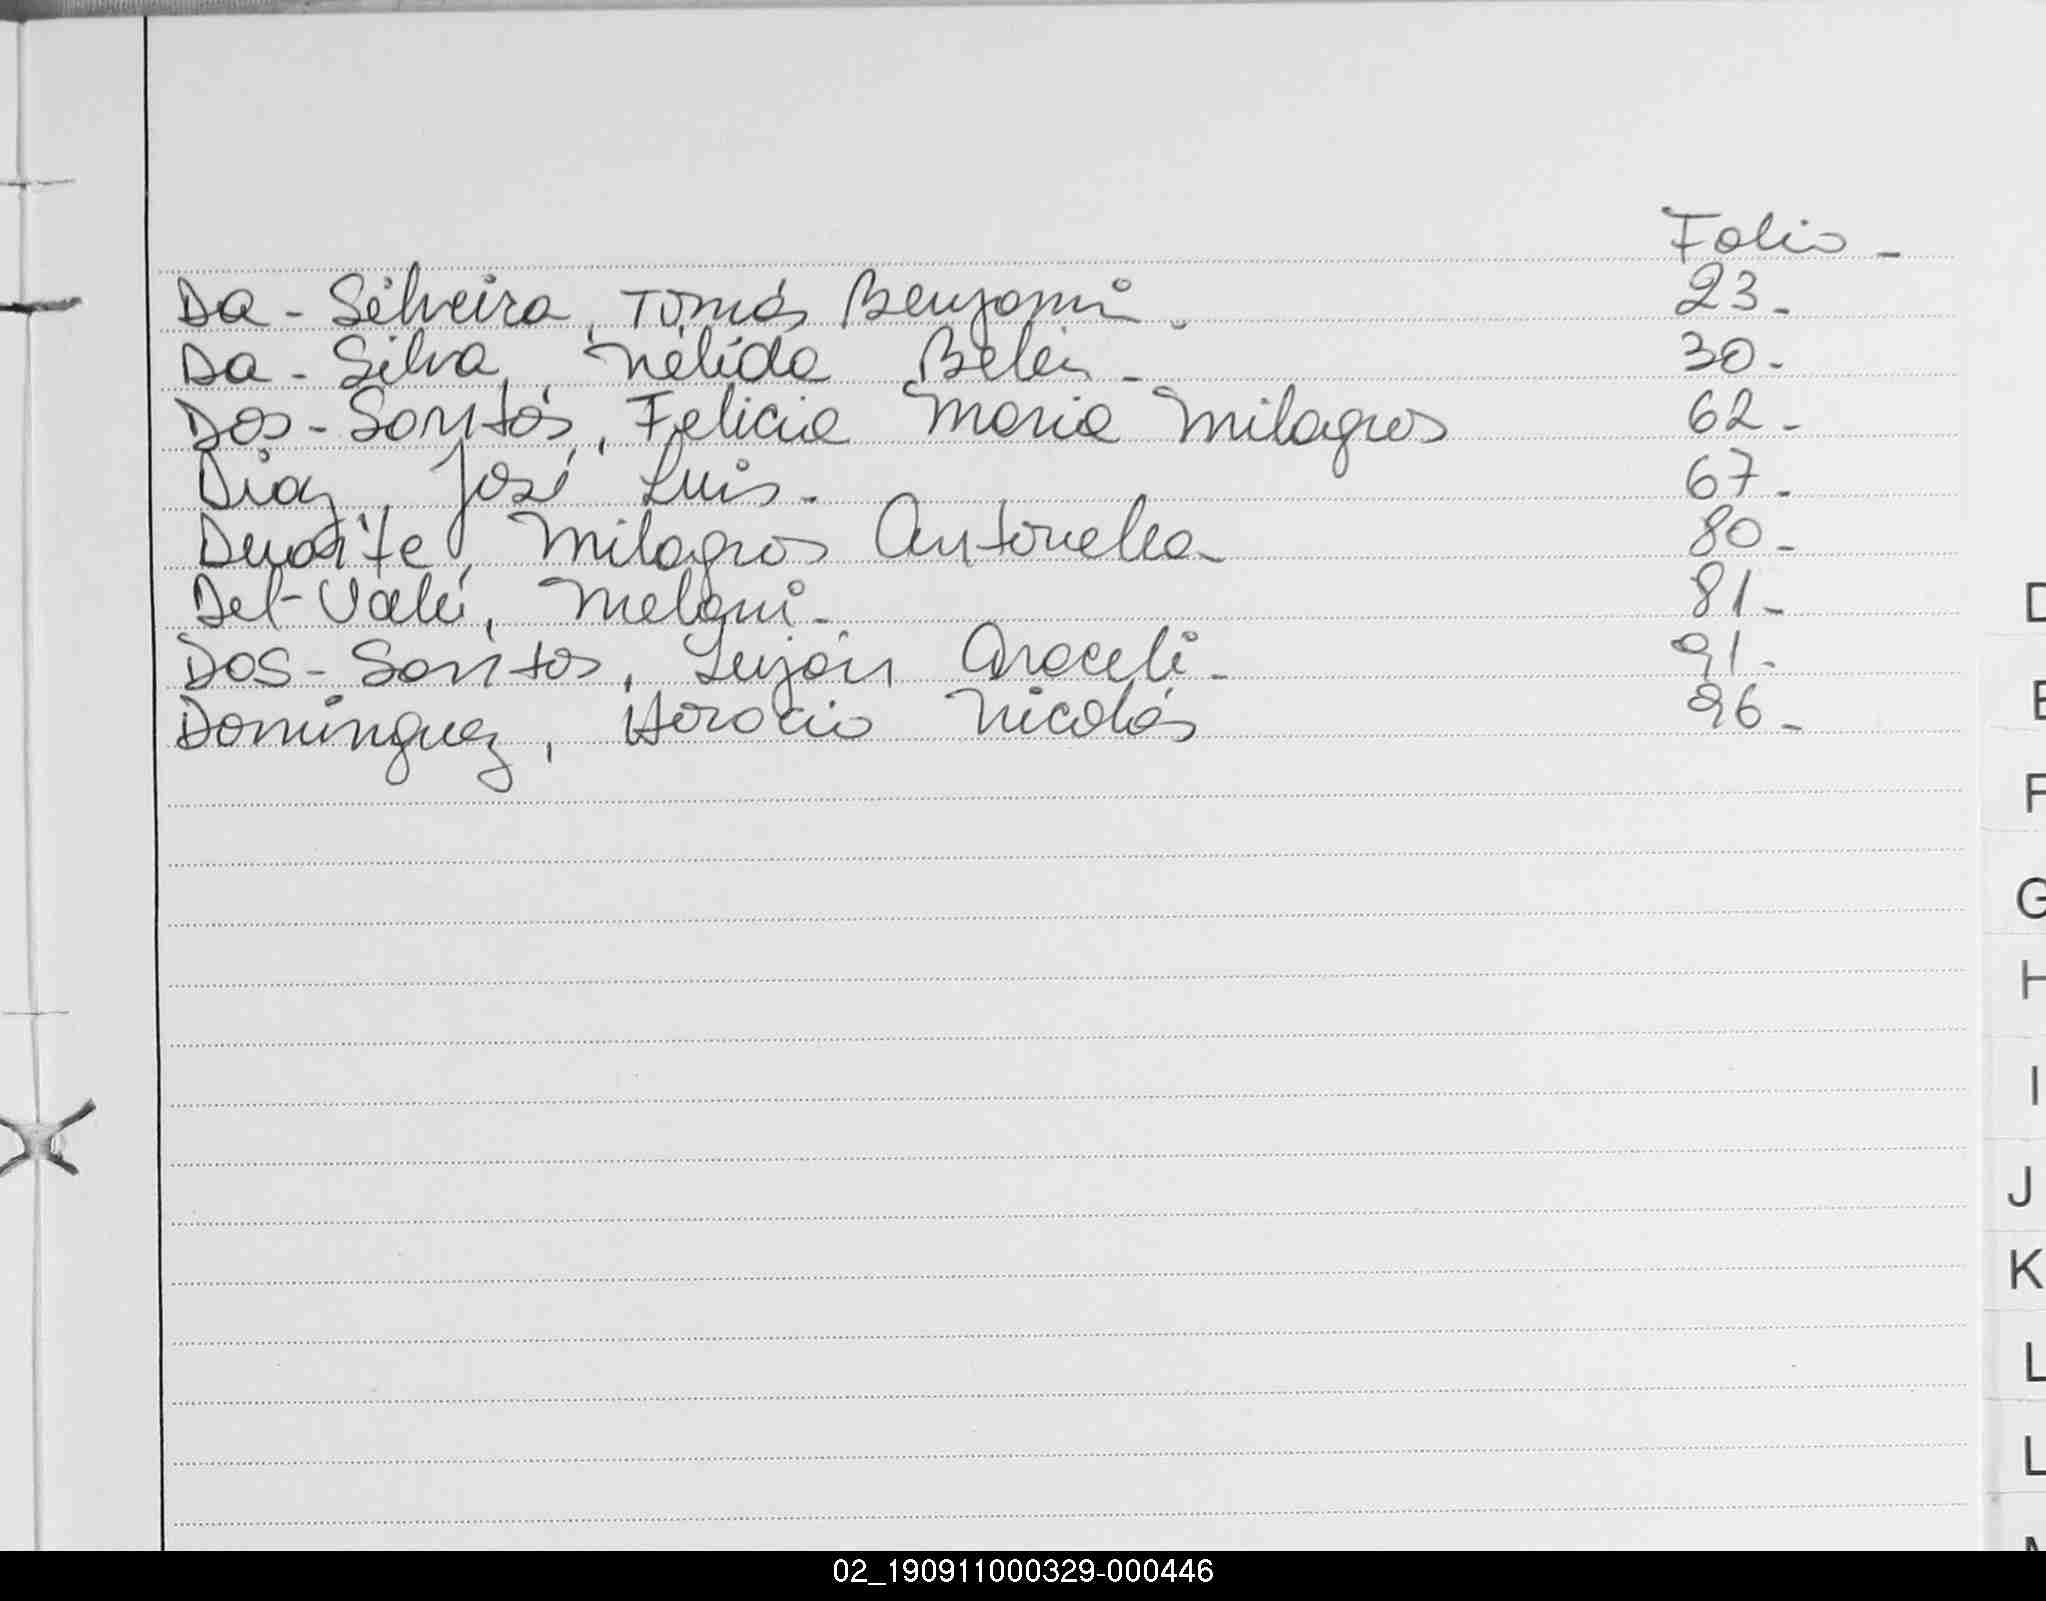 Folio -
Da - Silveira, Tomás Benjami. 23.-
Da - Silva, Nélida Belén - 30.-
Dos - Santos, Felicia Maria Milagros 62 -
Diaz, José Luis. 67 -
Duarte, Milagros Antonella - 80 -
Del - Valle, Melani - 81 -
Dos - Santos, Luján Araceli - 91 -
Dominguez, Horacio Nicolás 96 -
D
E
F
G
H
I
J
K
L
L
02_190911000329-000446